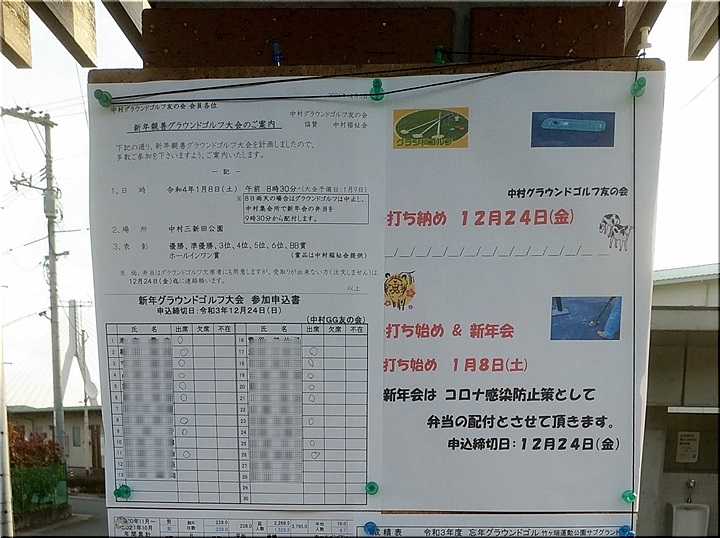 中村グラウンドゴルフ友の会 会員各位
中村グラウンドゴルフ友の会
協賛 中村福祉会
新年親善グラウンドゴルフ大会のご案内
下記の通り、新年親善グラウンドゴルフ大会を計画しましたので、
多数ご参加を下さいますよう、ご案内いたします。
― 記 ―
1、日 時 令和4年1月8日(土) 午前 8時30分~(大会予備日:1月9日)
※8日雨天の場合はグラウンドゴルフは中止し、
中村集会所で新年会の弁当を
9時30分から配付します。
2、場 所 中村三新田公園
3、表 彰 優勝、準優勝、3位、4位、5位、6位、BB賞
ホールインワン賞 (賞品は中村福祉会提供)
※ 尚、弁当はグラウンドゴルフ欠席者にも用意しますが、受取りが出来ない方(注文しません)は
12月24日(金)迄に連絡願います。
以上
新年グラウンドゴルフ大会 参加申込書
申込締切日:令和3年12月24日(日)
(中村GG友の会)
氏 名 出席 欠席 不在 氏 名 出席 欠席 不在
グラウンドゴルフ
中村グラウンドゴルフ友の会
打ち納め 12月24日(金)
打ち始め & 新年会
打ち始め 1月8日(土)
新年会は コロナ感染防止策として
弁当の配付とさせて頂きます。
申込締切日:12月24日(金)
2020年11月~
2021年10月
年間累計
成績表 令和3年度 忘年グラウンドゴルフ 竹ヶ端運動公園サブグランド